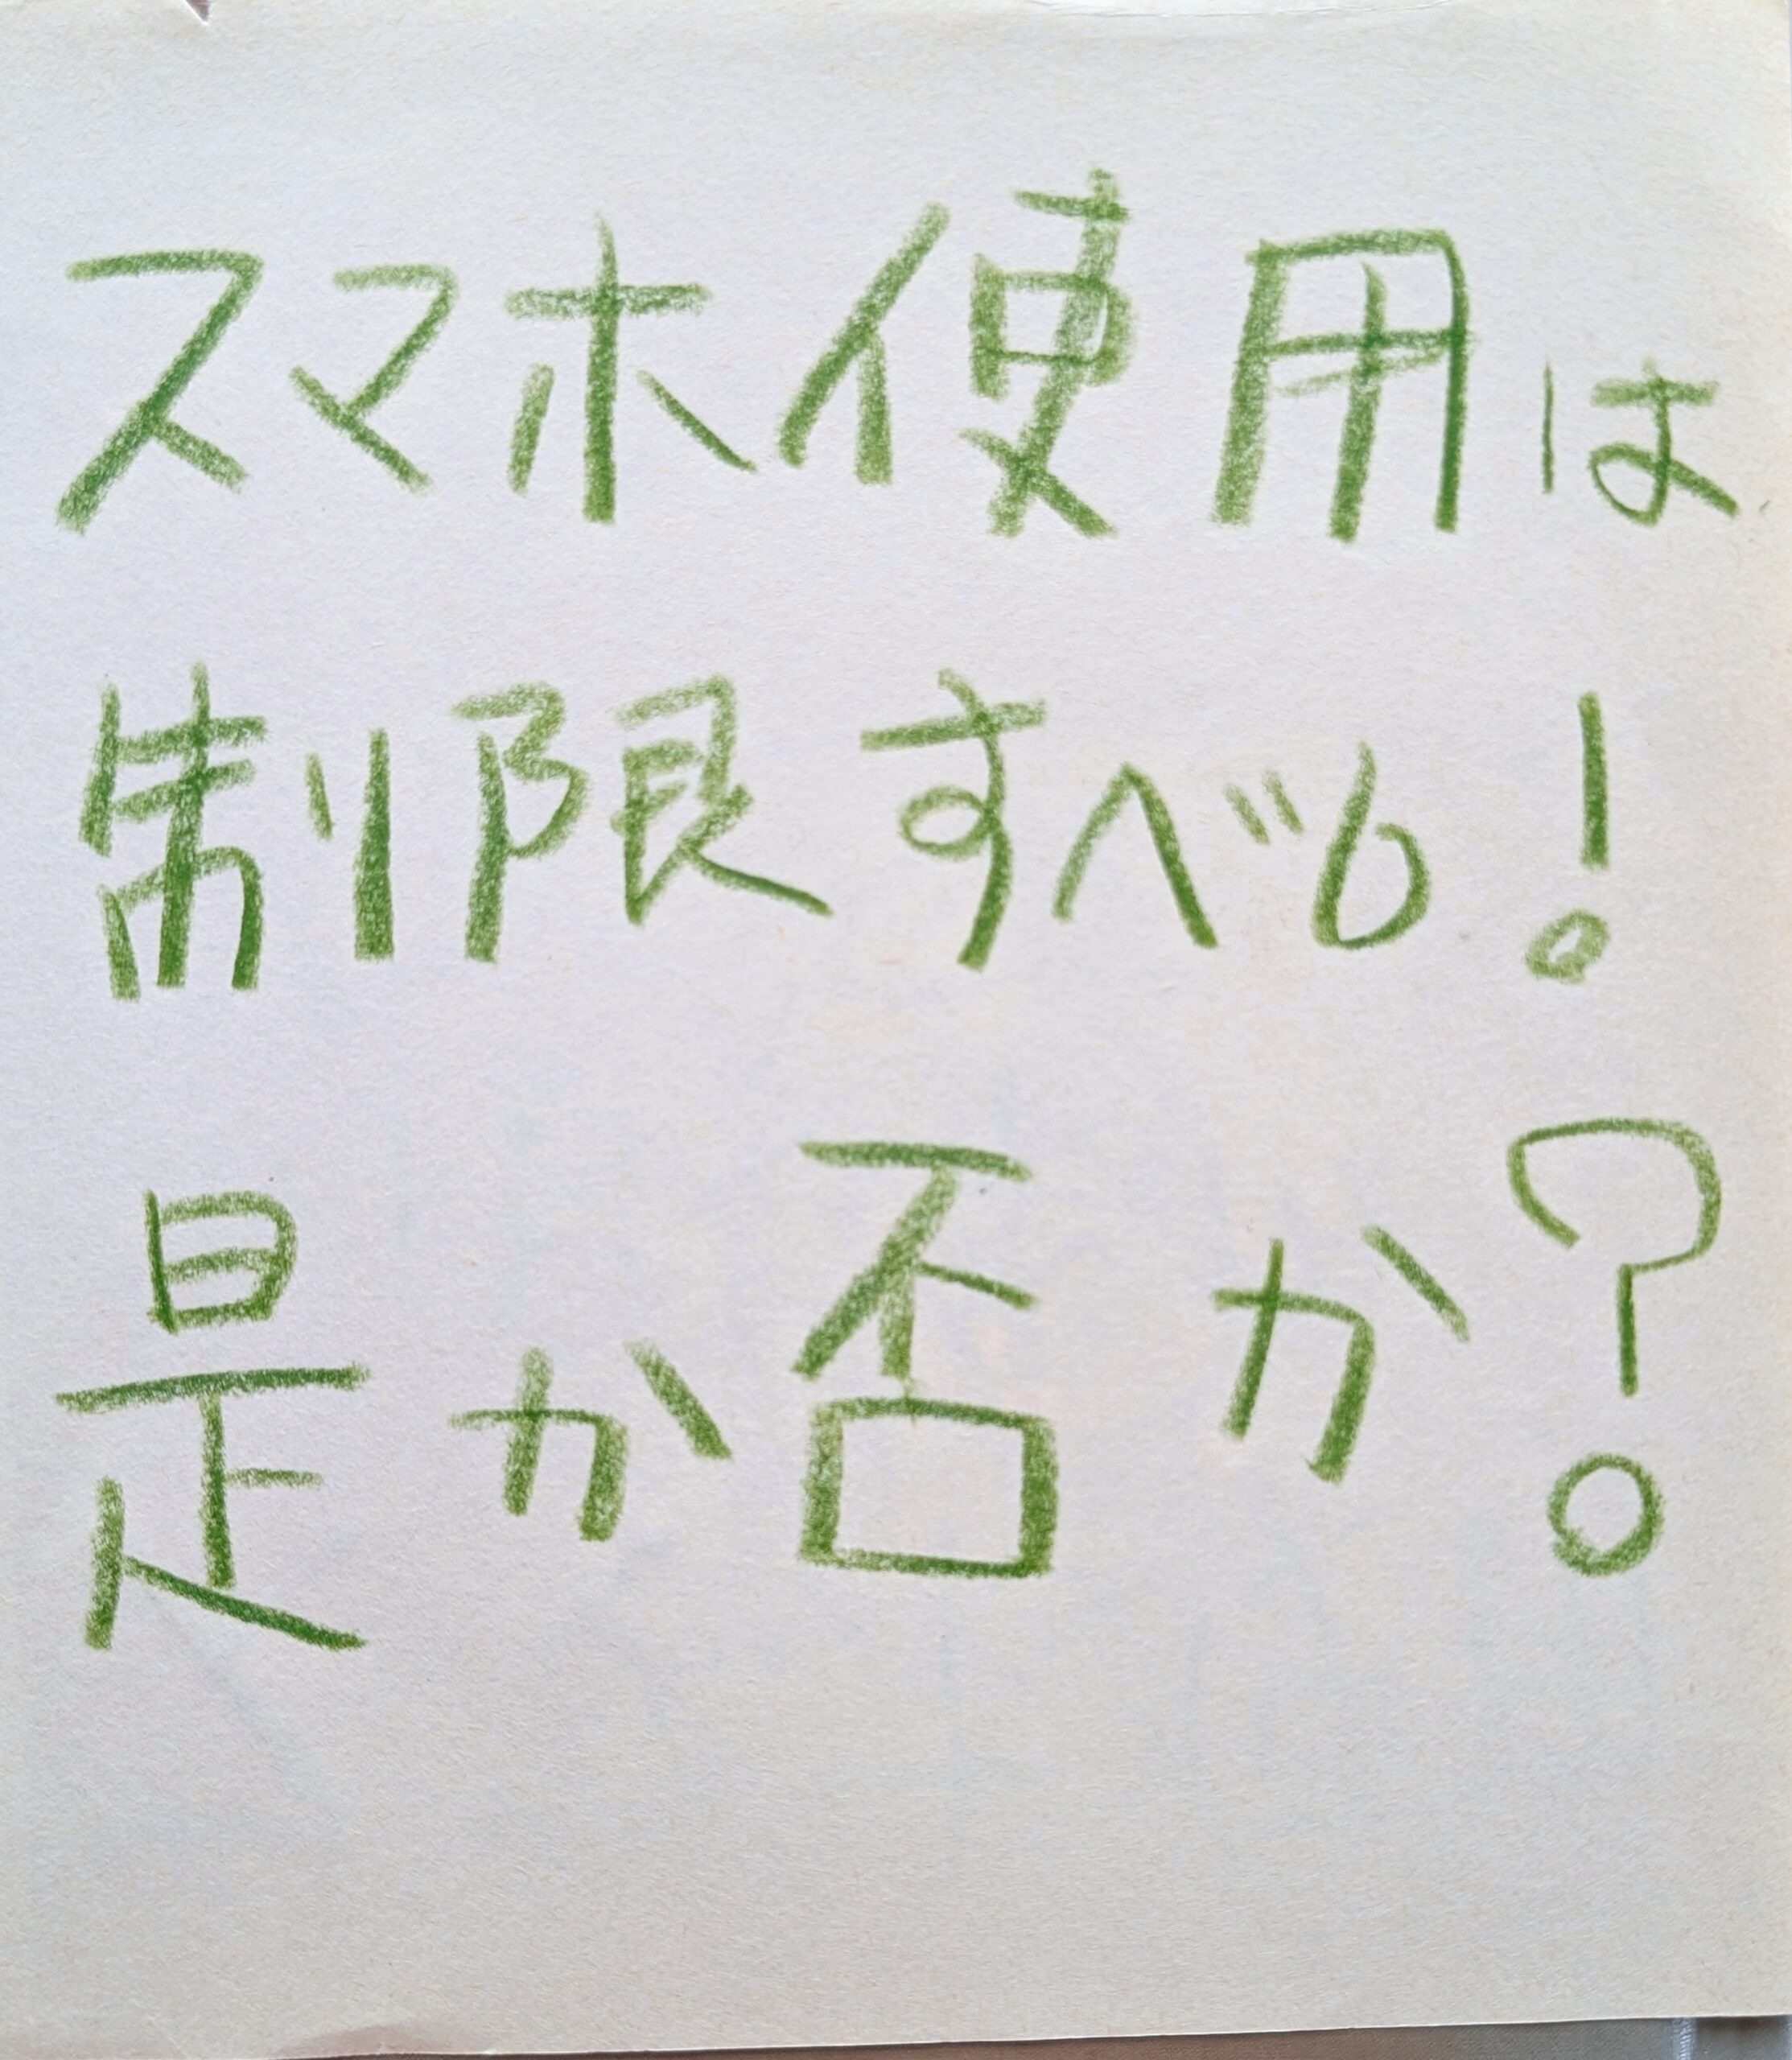 スマホ使用は
制限すべし!
是か否か?